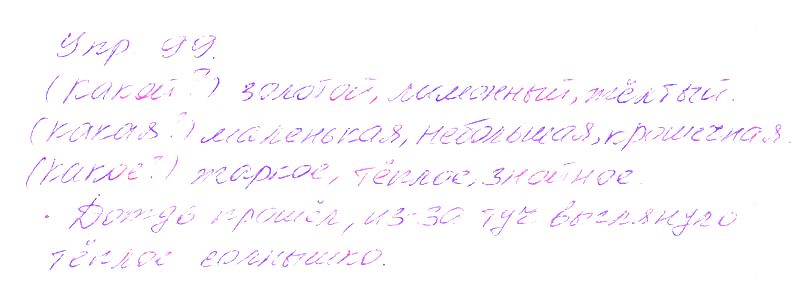 Упр 99.
(какой?) золотой, лимонный, жёлтый.
(какая?) маленькая, небольшая, крошечная.
(какое?) жаркое, тёплое, знойное.
· Дождь прошёл, из-за туч выглянуло
тёплое солнышко.